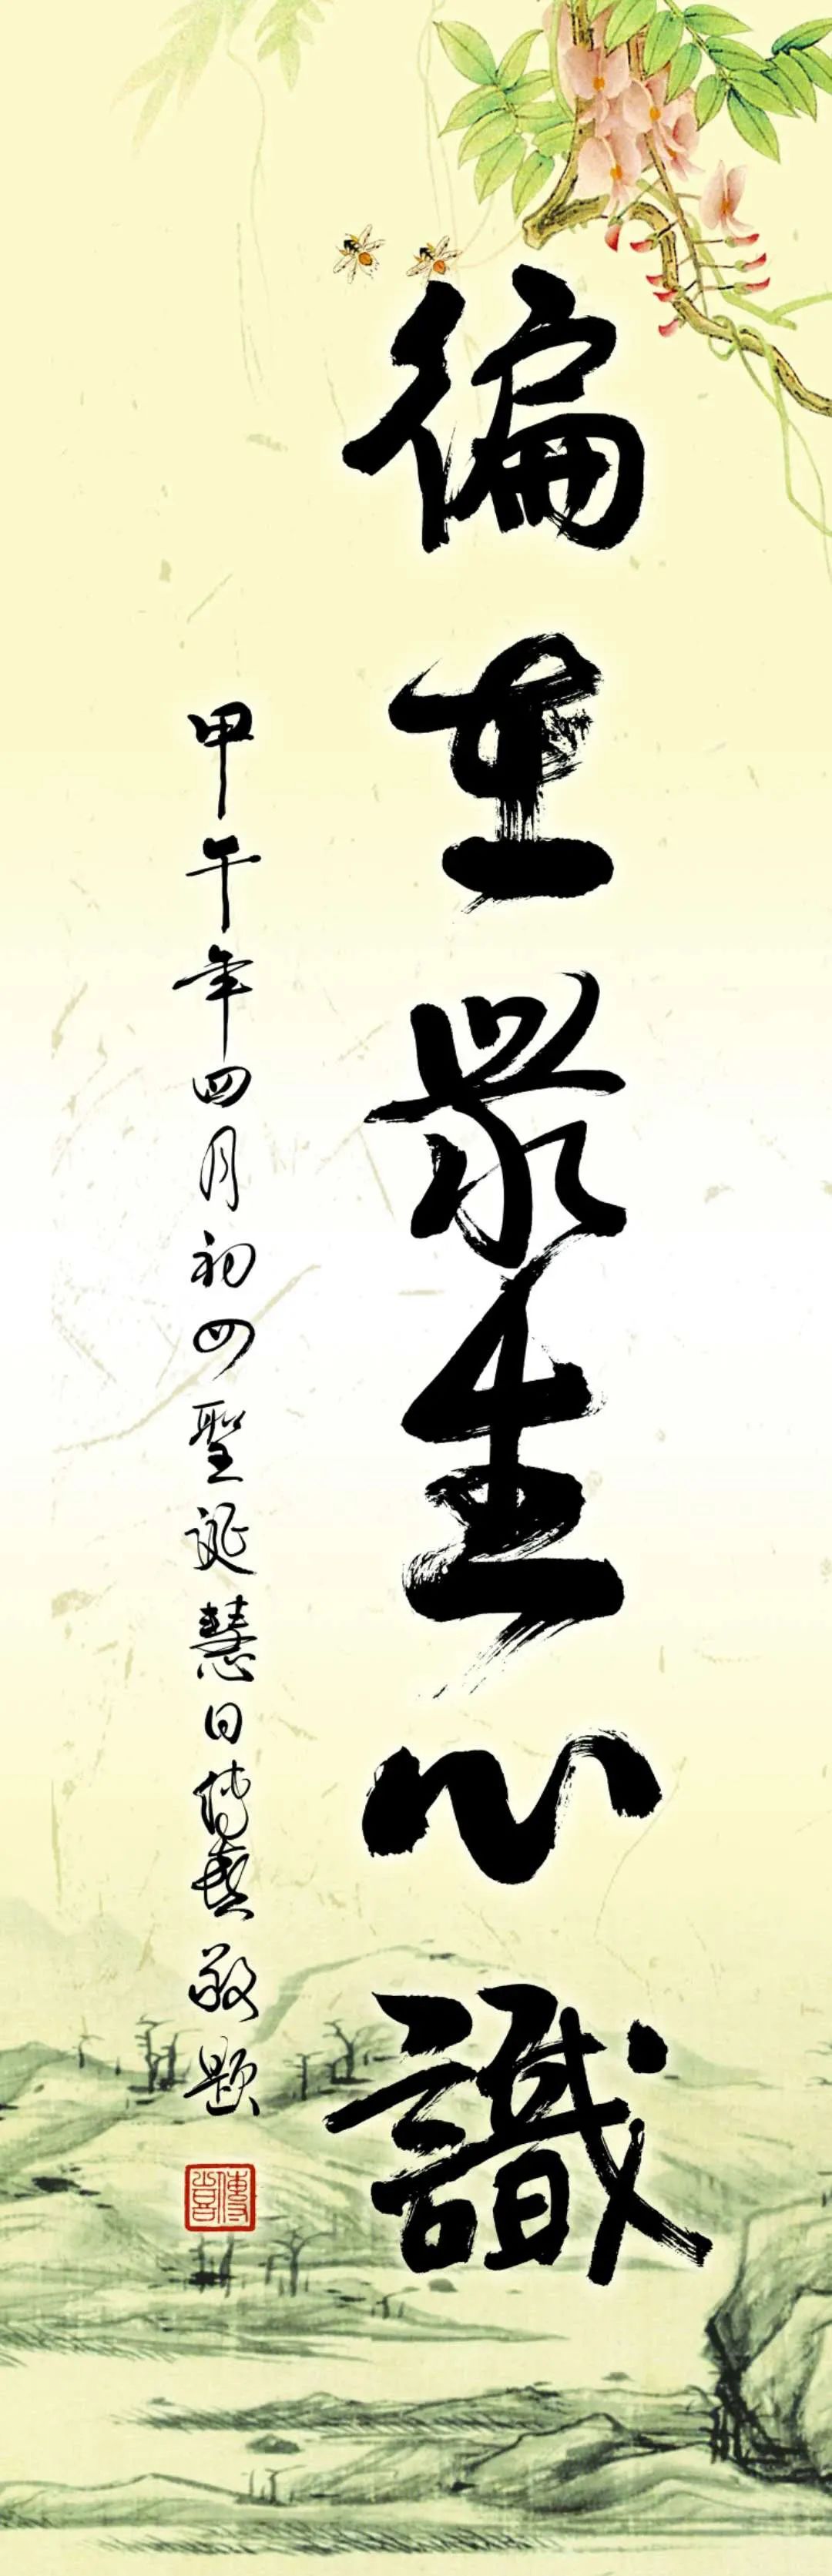 徧在眾生心識
甲午年四月初四聖誕慧日傳喜敬題
傳喜